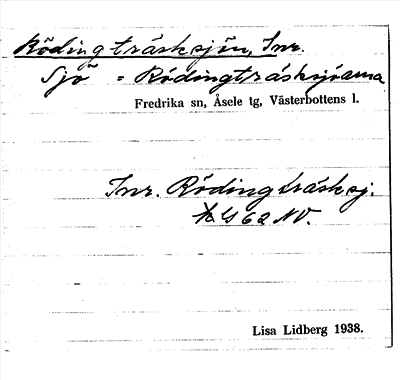 Rödingträsksjön, Inr.
Sjö = Rödingträsksjöarna
Fredrika sn, Åsele tg, Västerbottens l.
Inr. Rödingträsksj.
G62 NV.
Lisa Lidberg 1938.